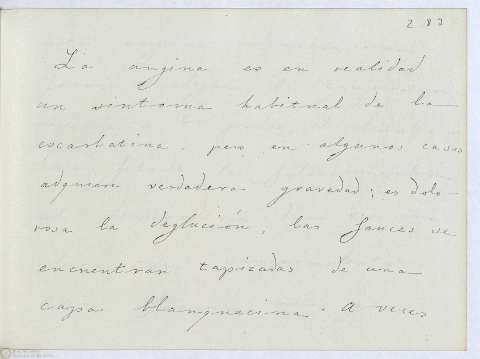 283
La angina es en realidad
un sintoma habitual de la
escarlatina, pero en algunos casos
adquiere verdadera gravedad; es dolo-
rosa la deglución, las fauces se
encuentran tapizadas de una
capa blanquecina. A veces